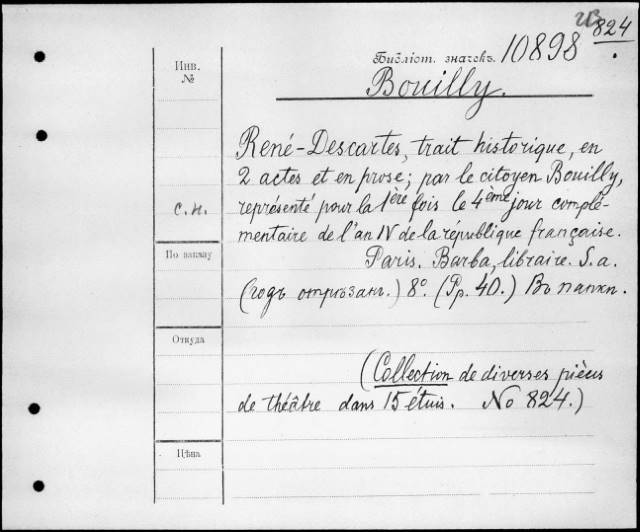 824
Библіот. значекъ. 10898
Bouilly.
Инв.
№
René-Descartes, trait historique, en
2 actes et en prose; par le citoyen Bouilly,
с. н.
représenté pour la 1ère fois le 4ème jour complé-
mentaire de l'an IV de la république française.
По заказу
Paris. Barba, libraire. S. a.
(годъ отрѣзанъ.) 8°. (Pp. 40.) Въ папкѣ.
Откуда
(Collection de diverses pièces
de théâtre dans 15 étuis. No 824.)
Цѣна